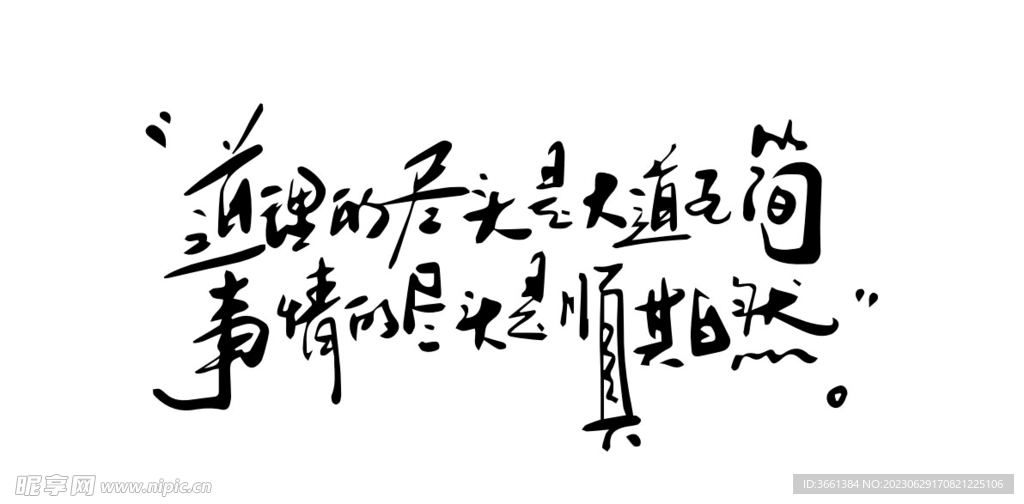 “道理的尽头是大道至简
事情的尽头是顺其自然”。
昵享网 www.nipic.cn
ID:3661384 NO:20230629170821225106